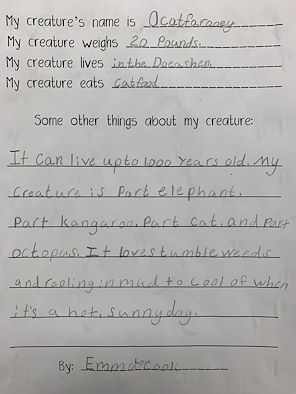 My creature's name is Ocatfaroney
My creature weighs 20 Pounds.
My creature lives in the
My creature eats Catfood
Some other things about my creature:
It Can live up to 1000 years old. My
Creature is Part elephant.
Part kangaroo. Part Cat. and Part
octopus. It loves tumble weeds
and rooling in mud to cool of when
it's a hot, sunny day.
By: